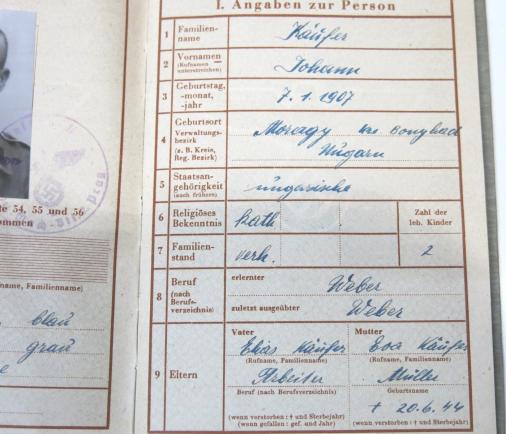 I. Angaben zur Person
1 Familien-
name
Käufer
2 Vornamen
(Rufnamen
unterstreichen)
Johann
3 Geburtstag,
-monat,
-jahr
7. 1. 1907
4 Geburtsort
Verwaltungs-
bezirk
(z. B. Kreis,
Reg. Bezirk)
Moragy Kr. Bonyhad
Ungarn
5 Staatsan-
gehörigkeit
(auch frühere)
ungarische
6 Religiöses
Bekenntnis
kath
Zahl der
leb. Kinder
7 Familien-
stand
verh.
2
8 Beruf
(nach
Berufs-
verzeichnis)
erlernter
Weber
zuletzt ausgeübter
Weber
9 Eltern
Vater
Elias Käufer
(Rufname, Familienname)
Arbeiter
Beruf (nach Berufsverzeichnis)
(wenn verstorben: † und Sterbejahr)
(wenn gefallen: gef. und Jahr)
Mutter
Eva Käufer
(Rufname, Familienname)
Müller
Geburtsname
† 20.6.44
(wenn verstorben: † und Sterbejahr)
54, 55 und 56
ommen
name, Familienname)
blau
grau